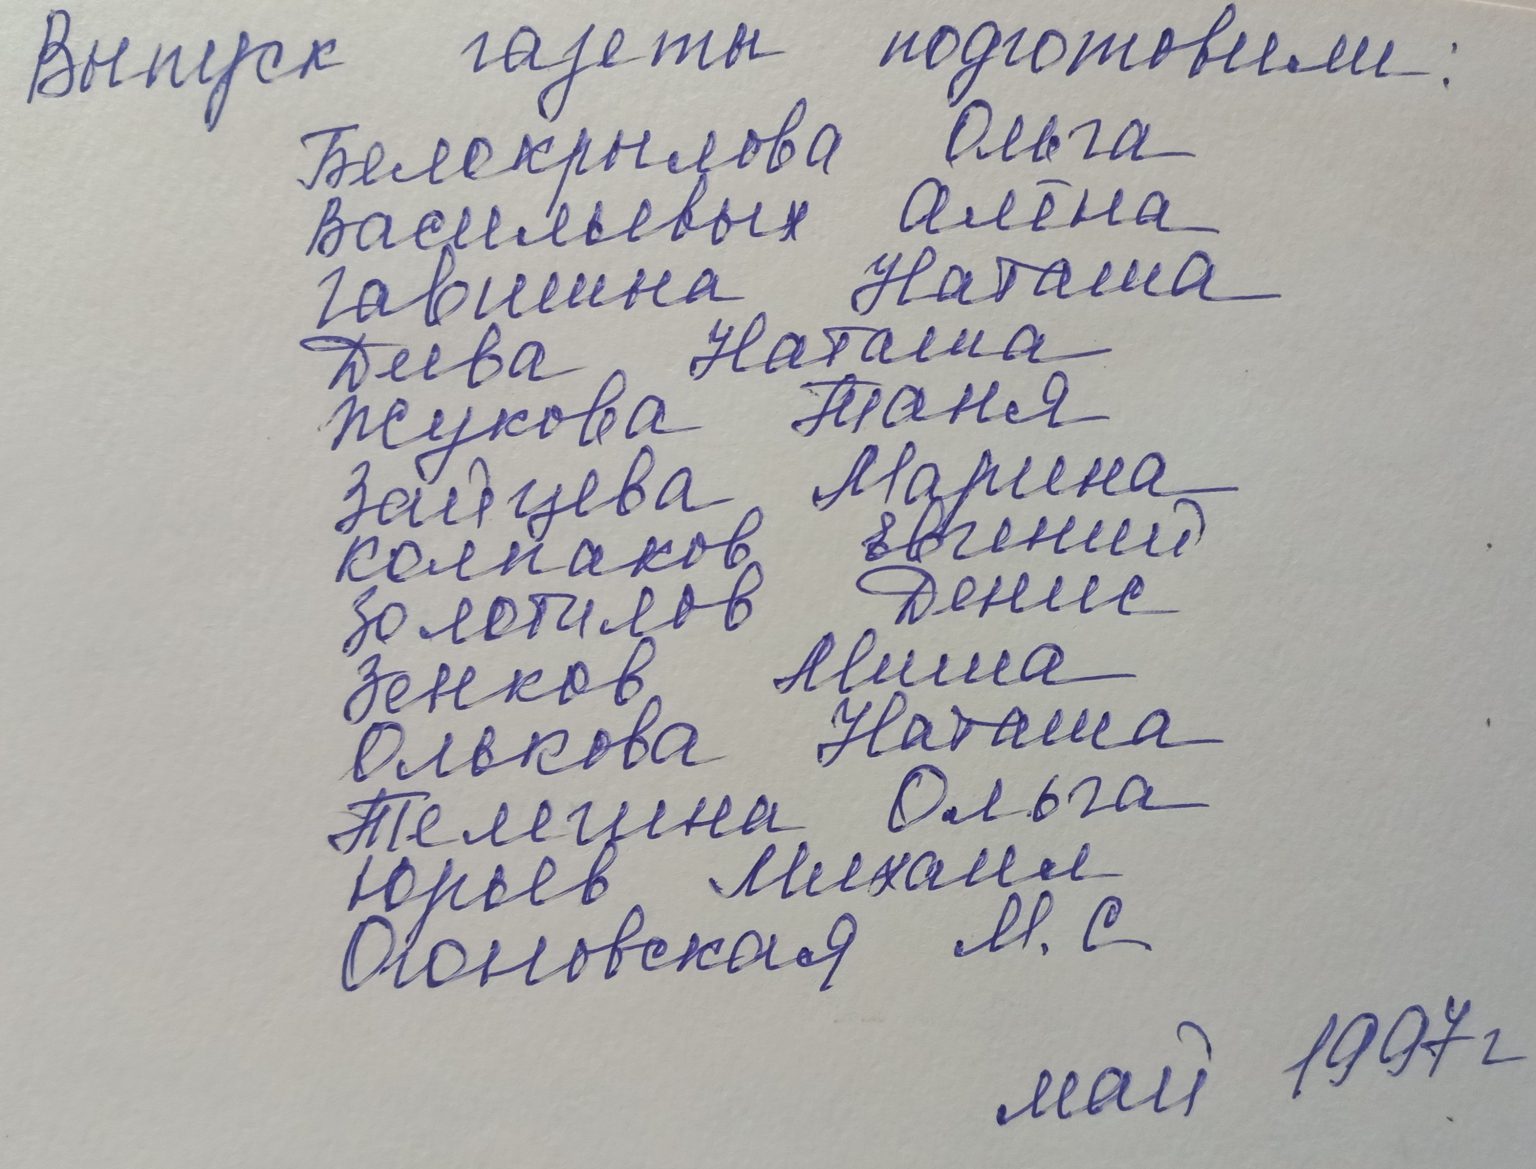 Выпуск газеты подготовили:
Белокрылова Ольга
Васильевых Алёна
Гавшина Наташа
Дива Наташа
Жукова Таня
Зайцева Марина
Колпаков Евгений
Золотилов Денис
Зенков Миша
Олькова Наташа
Телегина Ольга
Юрьев Михаил
Огоновская М. С
май 1997 г